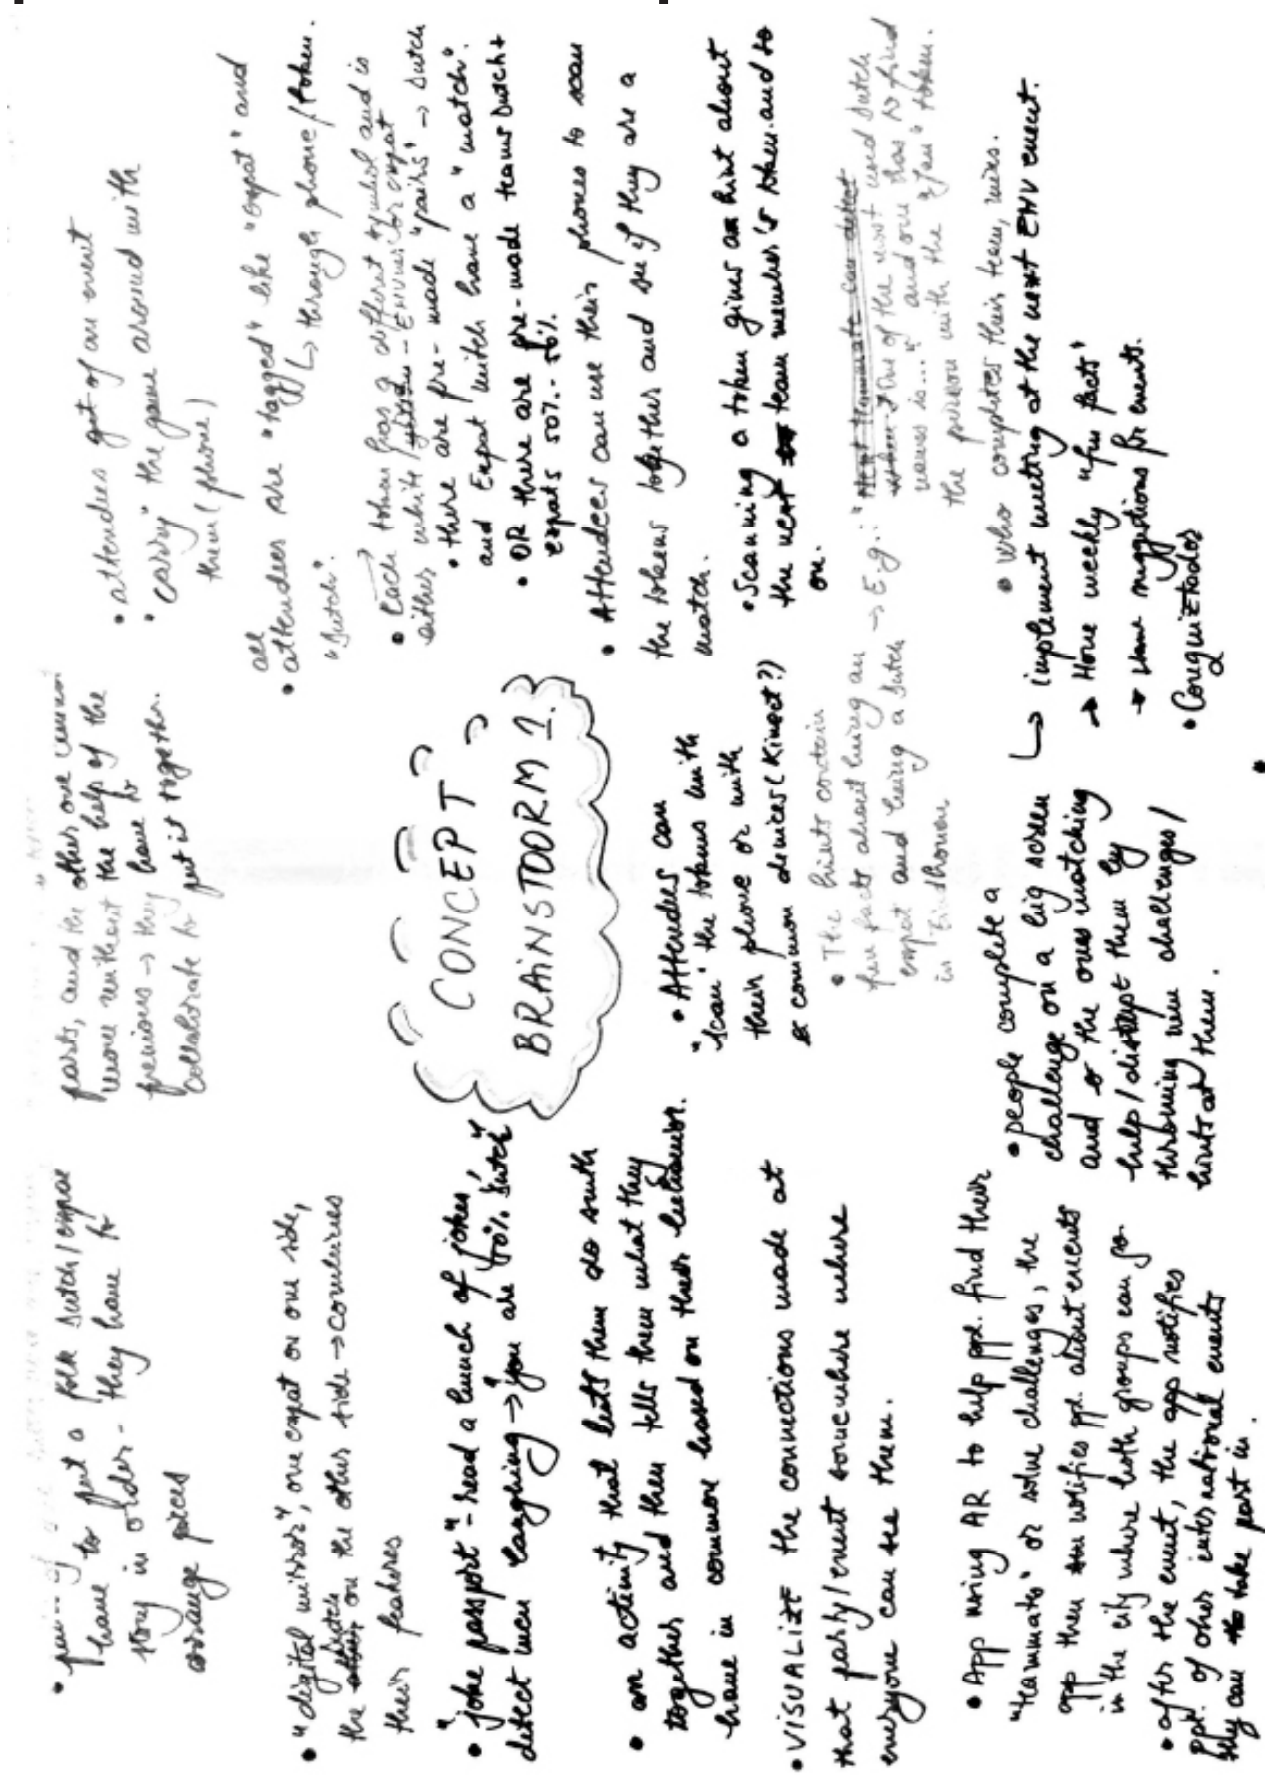 have to put a folk Dutch/expat
story in order - they have to
arrange pieces
parts, and the other one cannot
move without the help of the
previous → they have to
collaborate to put it together.
• attendees get of an event
• "carry" the game around with
them (phone)
• "digital mirror", one expat on one side,
the Dutch on the other side → combines
their features
• "joke passport" - read a bunch of jokes,
detect when laughing → "you are 50% Dutch"
• an activity that lets them do smth
together and then tells them what they
have in common based on their behavior.
• VISUALIZE the connections made at
that party/event somewhere where
everyone can see them.
• App using AR to help ppl. find their
"teammates" or solve challenges, the
app then notifies ppl. about events
in the city where both groups can go.
• after the event, the app notifies
ppl. of other international events
they can take part in.
CONCEPT
BRAINSTOORM 1.
• Attendees can
"scan" the tokens with
their phone or with
common devices (Kinect?)
• The hints contain
fun facts about being an
expat and being a Dutch → E.g.: "
in Eindhoven
• people complete a
challenge on a big screen
and the ones matching
help/disrupt them by
throwing new challenges/
hints at them.
all
• attendees are "tagged" like "expat" and
"Dutch". ↳ through phone/token.
• Each token has a different symbol and is
either white/
• there are pre-made "pairs" → Dutch
and Expat which have a "match".
• OR there are pre-made teams Dutch +
expats 50% - 50%.
• Attendees can use their phones to scan
the tokens together and see if they are a
match.
• Scanning a token gives a hint about
the next team member's token and so
on.
One of the most used Dutch
names is..." and one has to find
the person with the "Jan" token.
• Who completes their team, wins.
↳ implement meeting at the next EHV event.
→ Have weekly "fun facts"
→ Have suggestions for events.
• Conquiztador